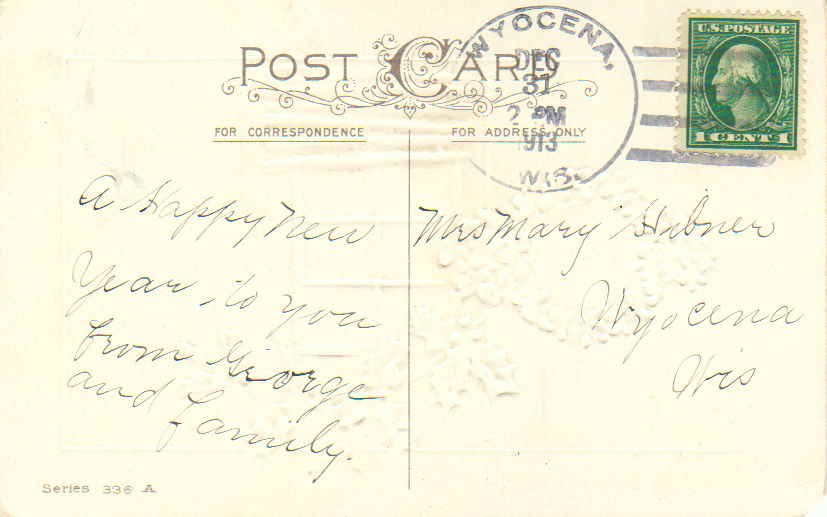 POST CARD
FOR CORRESPONDENCE
FOR ADDRESS ONLY
WYOCENA,
DEC
31
2 PM
1913
WIS.
U.S. POSTAGE
1 CENT 1
A Happy New
Year to you
from George
and family.
Mrs Mary Hibner
Wyocena
Wis
Series 336 A